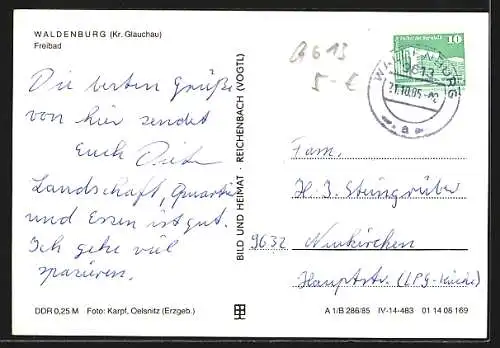 WALDENBURG (Kr. Glauchau)
Freibad
Die besten Grüße
von hier sendet
Euch Dieter
Landschaft, Quartier
und Essen ist gut.
Ich gehe viel
spazieren.
DDR 0,25 M Foto: Karpf, Oelsnitz (Erzgeb.)
BILD UND HEIMAT · REICHENBACH (VOGTL)
B613
5-€
10
WALDENBURG
9613
21.10.85
a
Fam.
H. J. Steingrüber
9632 Neukirchen
Hauptstr. (LPG-Küche)
A 1/B 286/85 IV-14-483 01 14 08 169